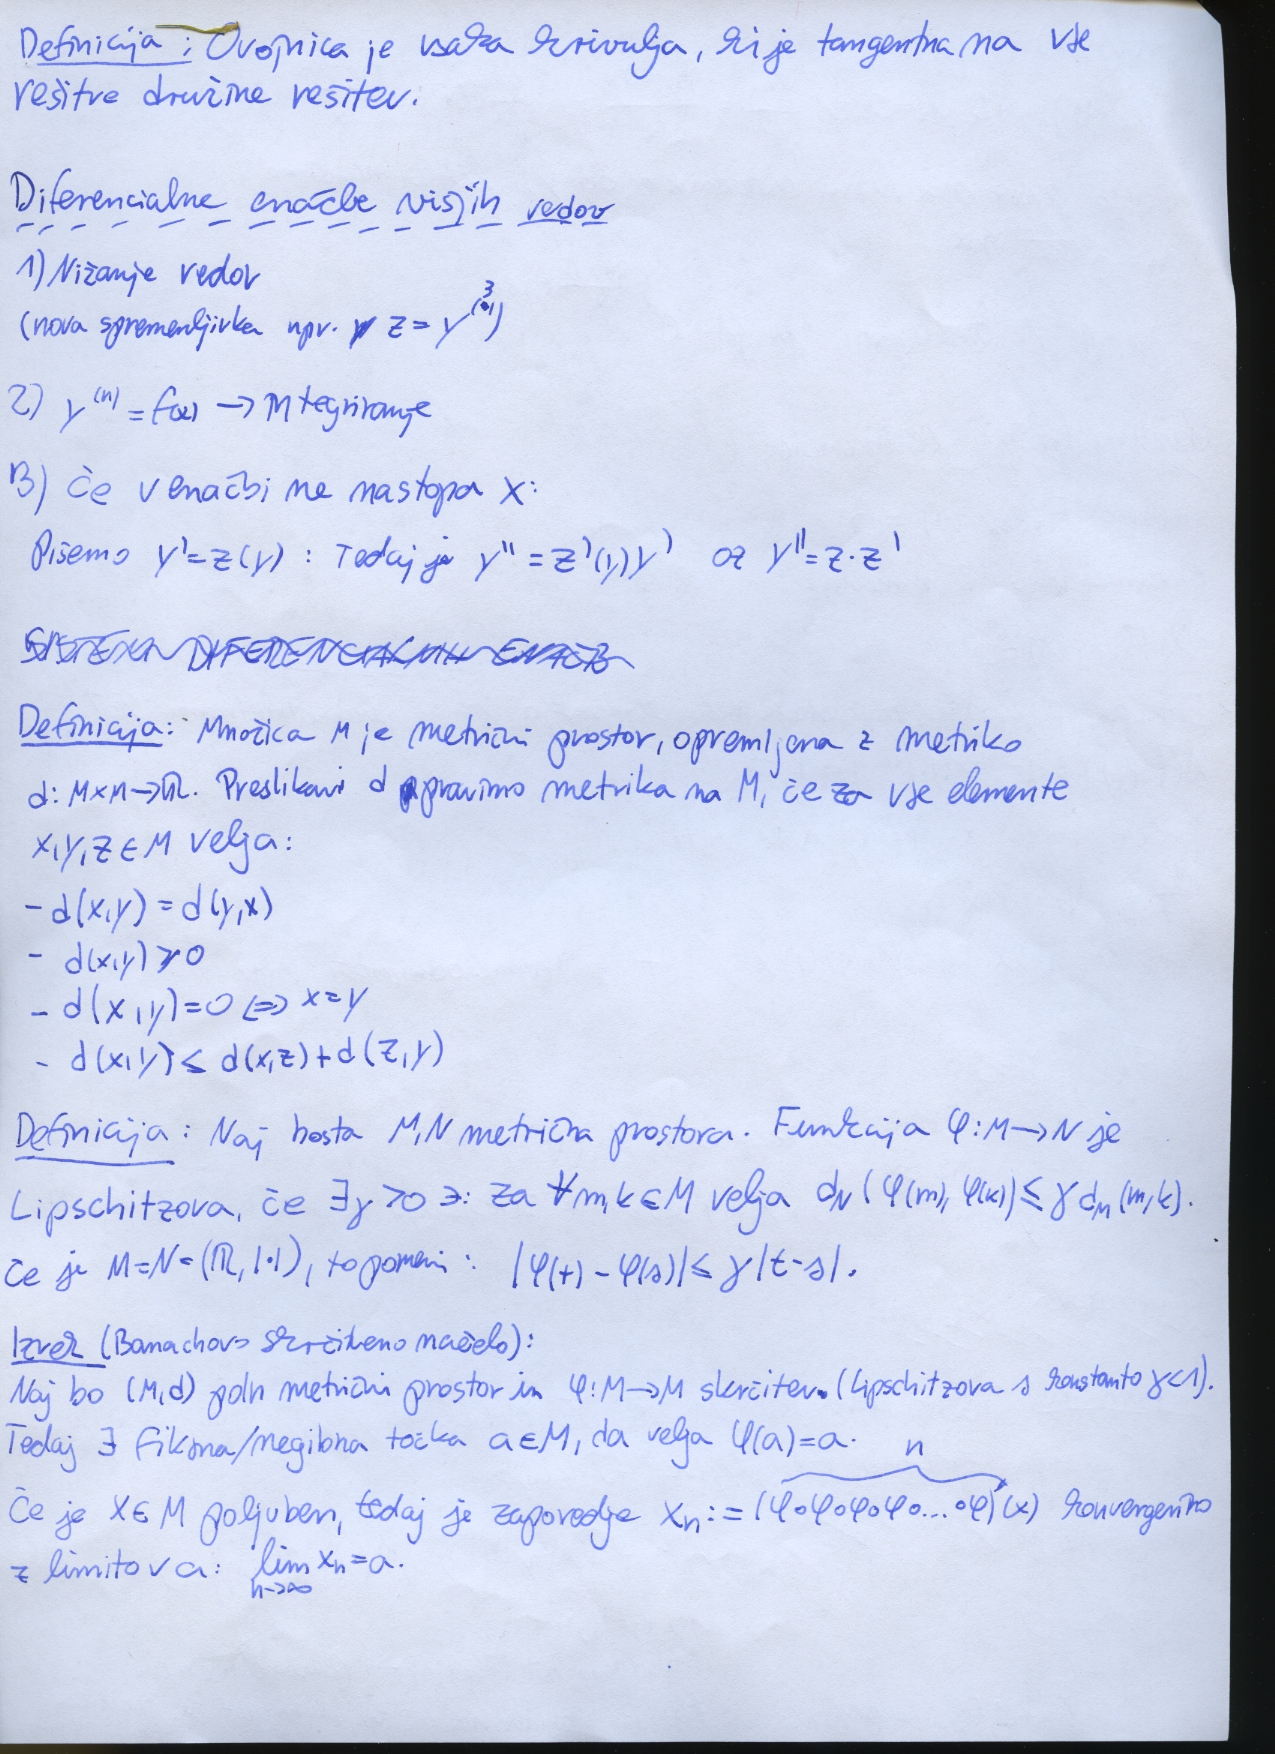 Definicija: Ovojnica je vsaka krivulja, ki je tangentna na vse
rešitve družine rešitev.
Diferencialne enačbe višjih redov
1) Nižanje redov
(nova spremenljivka npr. z = y^(3))
2) y^(n) = f(x) → integriranje
3) Če v enačbi ne nastopa x:
Pišemo y' = z(y) : Tedaj je y'' = z'(y)y' oz y'' = z·z'
SISTEMI DIFERENCIALNIH ENAČB
Definicija: Množica M je metrični prostor, opremljena z metriko
d: M×M→ℝ. Preslikavi d pravimo metrika na M, če za vse elemente
x,y,z ∈ M velja:
- d(x,y) = d(y,x)
- d(x,y) ≥ 0
- d(x,y) = 0 ⇔ x = y
- d(x,y) ≤ d(x,z) + d(z,y)
Definicija: Naj bosta M,N metrična prostora. Funkcija φ: M→N je
Lipschitzova, če ∃γ>0 ∋: za ∀m,k∈M velja d_N(φ(m), φ(k)) ≤ γ d_M(m,k).
Če je M=N=(ℝ, |·|), to pomeni: |φ(t) - φ(s)| ≤ γ|t-s|.
Izrek (Banachovo skrčitveno načelo):
Naj bo (M,d) poln metrični prostor in φ: M→M skrčitev. (Lipschitzova s konstanto γ<1).
Tedaj ∃ fiksna/negibna točka a∈M, da velja φ(a)=a.
n
Če je x∈M poljuben, tedaj je zaporedje x_n := (φ∘φ∘φ∘φ∘...∘φ)(x) konvergentno
z limito v a: lim x_n = a.
n→∞